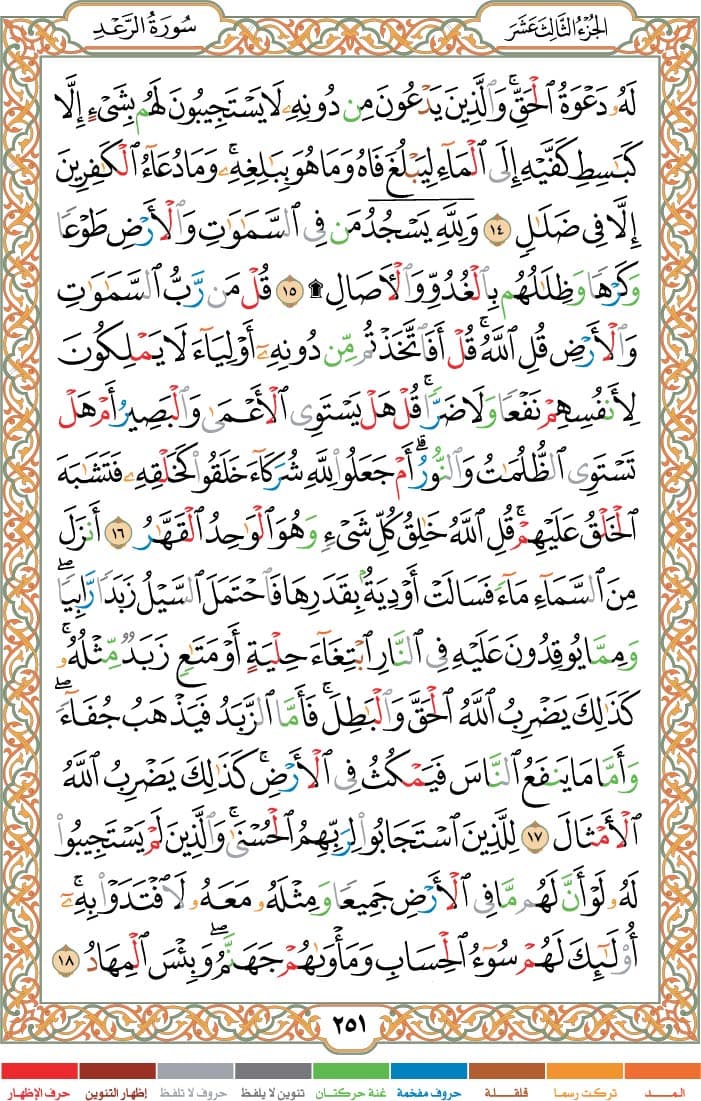 الجزء الثالث عشر
سورة الرعد
لَهُۥ دَعْوَةُ ٱلْحَقِّ ۖ وَٱلَّذِينَ يَدْعُونَ مِن دُونِهِۦ لَا يَسْتَجِيبُونَ لَهُم بِشَىْءٍ إِلَّا
كَبَـٰسِطِ كَفَّيْهِ إِلَى ٱلْمَآءِ لِيَبْلُغَ فَاهُ وَمَا هُوَ بِبَـٰلِغِهِۦ ۚ وَمَا دُعَآءُ ٱلْكَـٰفِرِينَ
إِلَّا فِى ضَلَـٰلٍ ١٤ وَلِلَّهِ يَسْجُدُ مَن فِى ٱلسَّمَـٰوَٰتِ وَٱلْأَرْضِ طَوْعًا
وَكَرْهًا وَظِلَـٰلُهُم بِٱلْغُدُوِّ وَٱلْـَٔاصَالِ ۩ ١٥ قُلْ مَن رَّبُّ ٱلسَّمَـٰوَٰتِ
وَٱلْأَرْضِ قُلِ ٱللَّهُ ۚ قُلْ أَفَٱتَّخَذْتُم مِّن دُونِهِۦٓ أَوْلِيَآءَ لَا يَمْلِكُونَ
لِأَنفُسِهِمْ نَفْعًا وَلَا ضَرًّا ۚ قُلْ هَلْ يَسْتَوِى ٱلْأَعْمَىٰ وَٱلْبَصِيرُ أَمْ هَلْ
تَسْتَوِى ٱلظُّلُمَـٰتُ وَٱلنُّورُ ۗ أَمْ جَعَلُوا۟ لِلَّهِ شُرَكَآءَ خَلَقُوا۟ كَخَلْقِهِۦ فَتَشَـٰبَهَ
ٱلْخَلْقُ عَلَيْهِمْ ۚ قُلِ ٱللَّهُ خَـٰلِقُ كُلِّ شَىْءٍ وَهُوَ ٱلْوَٰحِدُ ٱلْقَهَّـٰرُ ١٦ أَنزَلَ
مِنَ ٱلسَّمَآءِ مَآءً فَسَالَتْ أَوْدِيَةٌۢ بِقَدَرِهَا فَٱحْتَمَلَ ٱلسَّيْلُ زَبَدًا رَّابِيًا ۖ
وَمِمَّا يُوقِدُونَ عَلَيْهِ فِى ٱلنَّارِ ٱبْتِغَآءَ حِلْيَةٍ أَوْ مَتَـٰعٍ زَبَدٌ مِّثْلُهُۥ ۚ
كَذَٰلِكَ يَضْرِبُ ٱللَّهُ ٱلْحَقَّ وَٱلْبَـٰطِلَ ۚ فَأَمَّا ٱلزَّبَدُ فَيَذْهَبُ جُفَآءً ۖ
وَأَمَّا مَا يَنفَعُ ٱلنَّاسَ فَيَمْكُثُ فِى ٱلْأَرْضِ ۚ كَذَٰلِكَ يَضْرِبُ ٱللَّهُ
ٱلْأَمْثَالَ ١٧ لِلَّذِينَ ٱسْتَجَابُوا۟ لِرَبِّهِمُ ٱلْحُسْنَىٰ ۚ وَٱلَّذِينَ لَمْ يَسْتَجِيبُوا۟
لَهُۥ لَوْ أَنَّ لَهُم مَّا فِى ٱلْأَرْضِ جَمِيعًا وَمِثْلَهُۥ مَعَهُۥ لَٱفْتَدَوْا۟ بِهِۦٓ ۚ
أُو۟لَـٰٓئِكَ لَهُمْ سُوٓءُ ٱلْحِسَابِ وَمَأْوَىٰهُمْ جَهَنَّمُ ۖ وَبِئْسَ ٱلْمِهَادُ ١٨
٢٥١
المــد تركت رسما قلقلة حروف مفخمة غنة حركتان تنوين لا يلفظ حروف لا تلفظ إظهار التنوين حرف الإظهار